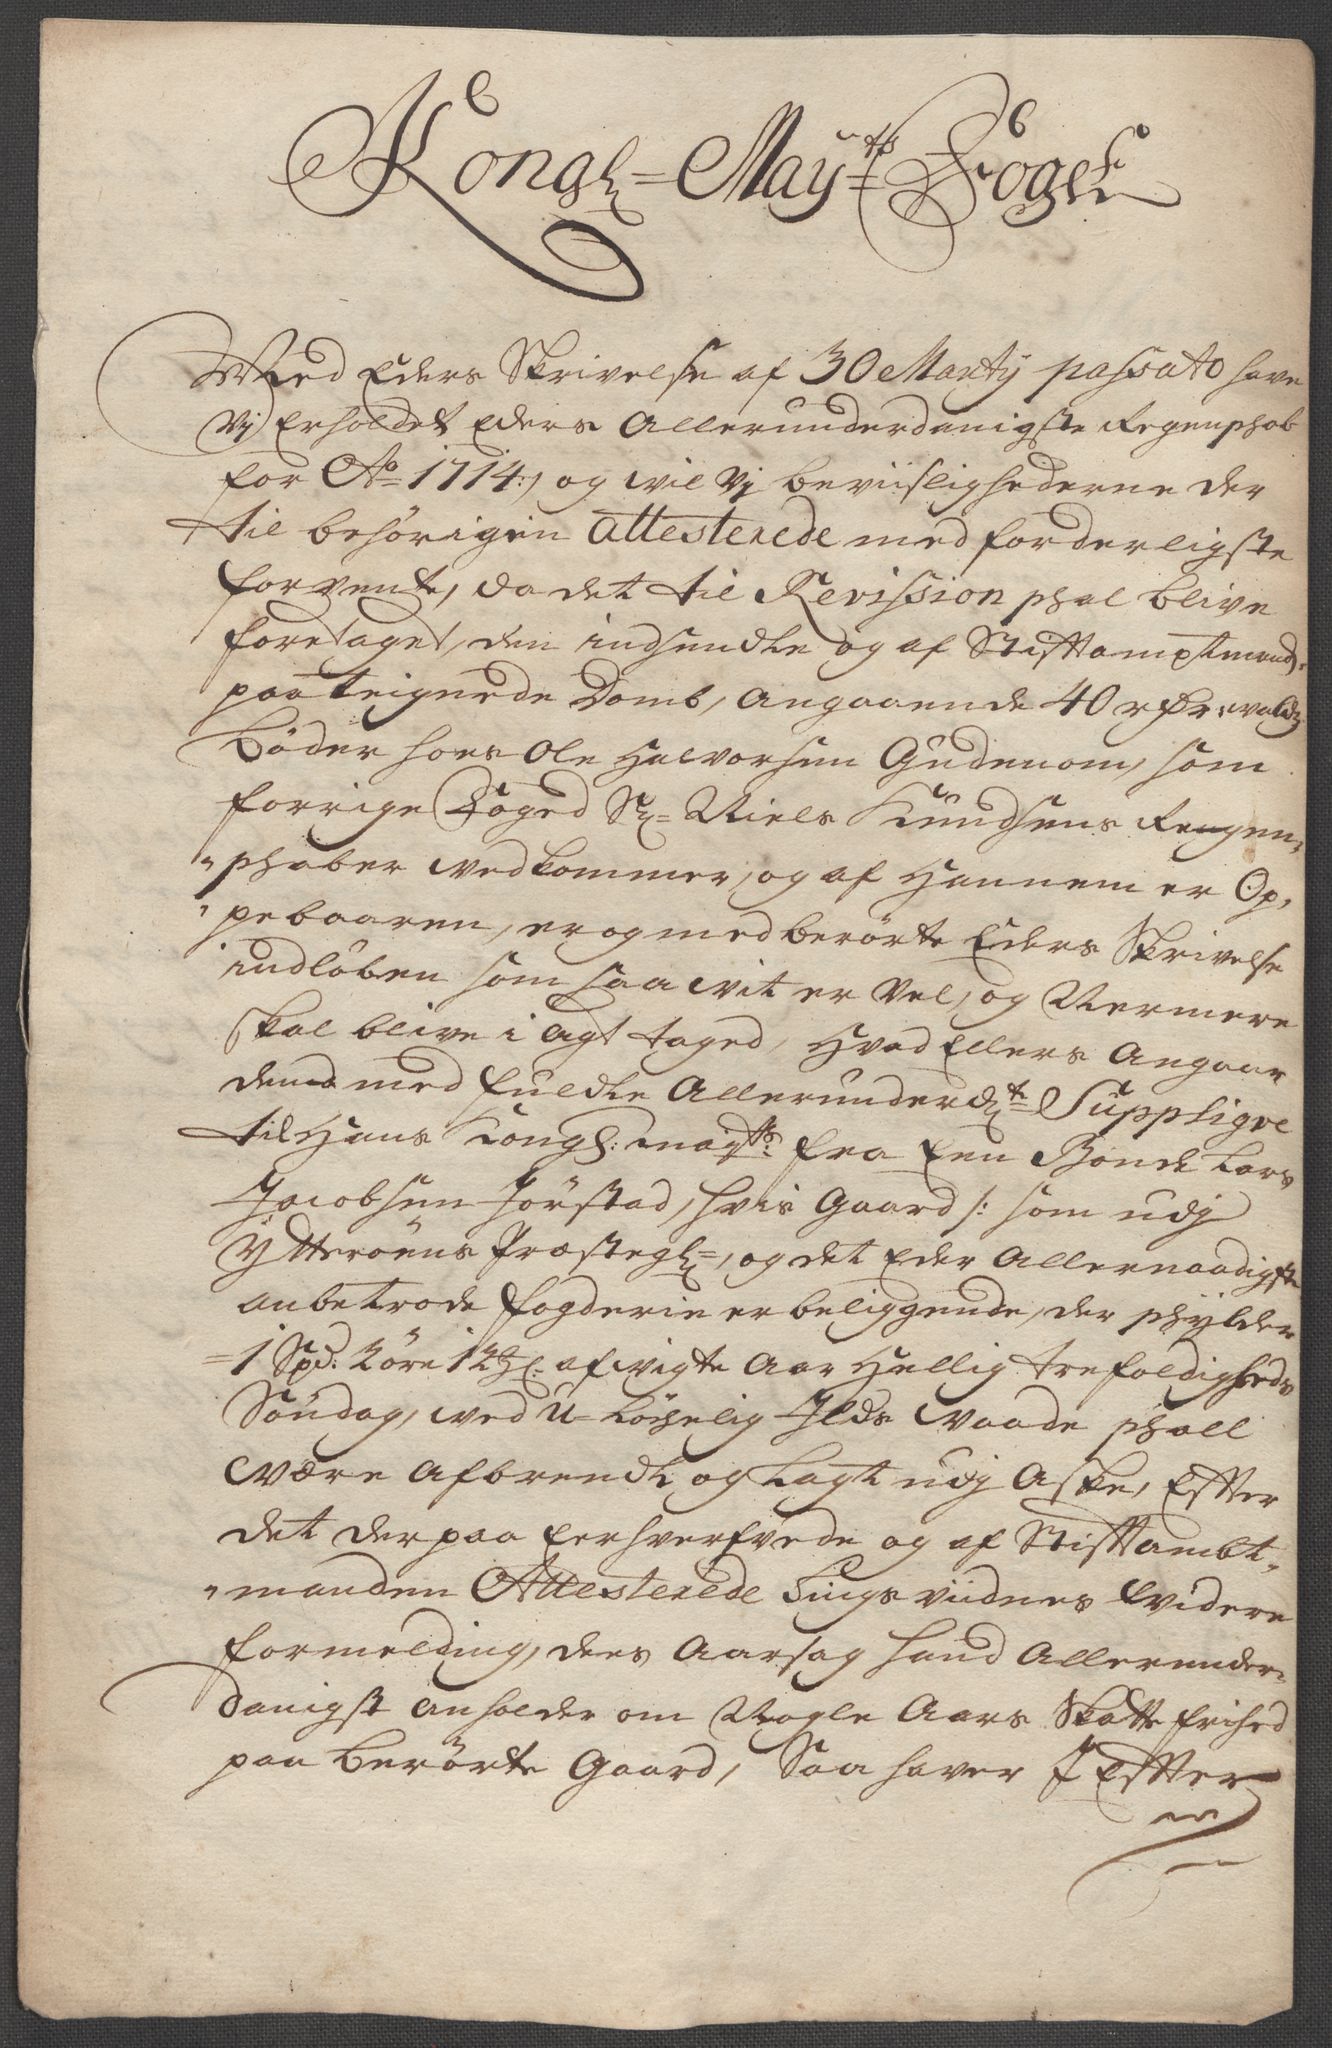 Kongl= May=ts Foget
Med Eders Skrivelse af 30 Martij passato have
Vj Erholdet Eders Allerunderdanigste Regenschab
for Ao 1714:, og vil Vj beviislighederne der
til behörigen attesterede med forderligste
forvente, da det til Revission schal blive
foretaget, den indsendte og af Stiftamptmand
paateignede Domb, angaaende 40 rdr:
Böder hos Ole Halvorsen Gudenom, som
forrige Foged Sr= Niels Knudsens Regen-
schaber vedkommer, og af Hannem er Op-
pebaaren, er og med berörte Eders Skrivelse
indlöben som saa vit er Vel, og Nermere
skal blive i agt taged, Hvad Ellers Angaar
dend med fuldte Allerunderdte= Supplique
til Hans Kongl: Mayts: fra Een Bonde Lars
Jacobsen Jörstad, hvis Gaard /: som udj
Ytteröens Præstegl=, og det Eder Allernaadigste
anbetrode fogderie er beliggende, der schylder
1 Spd: 2 öre 12 Mkl: afvigte Aar Hellig trefoldigheds
Söndag, ved U-Løchelig Ilds vaade schall
være Afbrendt og Lagt udj Aske, Efter
det derpaa Eerhverfvede og af Stiftambt-
manden Attesterede Tings vidnes Videre
formelding, dees Aarsag hand Allerunder-
danigst anholder om Nogle Aars Skatte frihed
paa Berörte Gaard, Saa haver I Efter